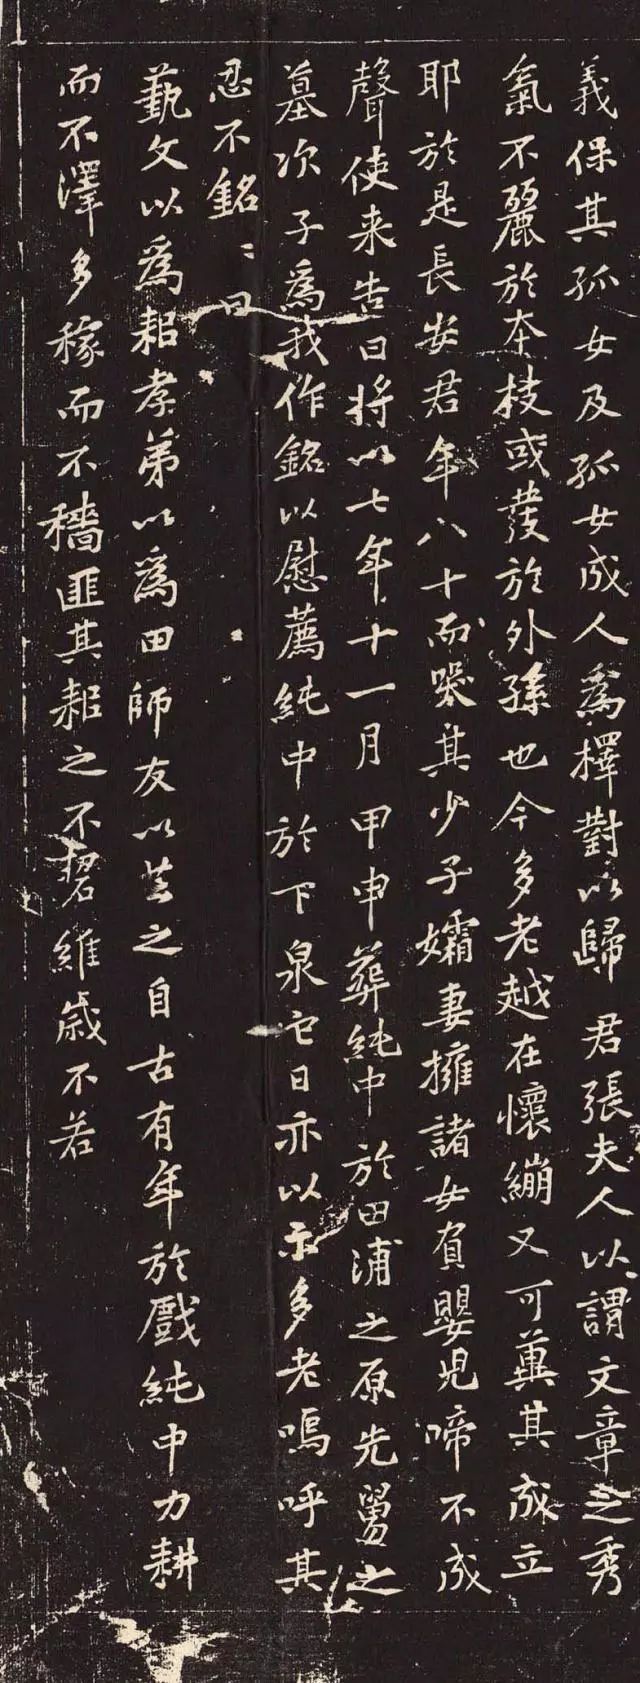 義保其孤女及孤女成人為擇對以歸君張夫人以謂文章之秀
氣不麗於本枝或發於外孫也今多老越在懷繃又可冀其成立
耶於是長安君年八十而哭其少子孀妻擁諸女負嬰兒啼不成
聲使来告曰將以七年十一月甲申葬純中於田浦之原先舅之
墓次子為我作銘以慰薦純中於下泉它日亦以示多老嗚呼其
忍不銘〻曰
藝文以為耜孝弟以為田師友以芸之自古有年於戲純中力耕
而不澤多稼而不穡匪其耜之不䂮維歲不若